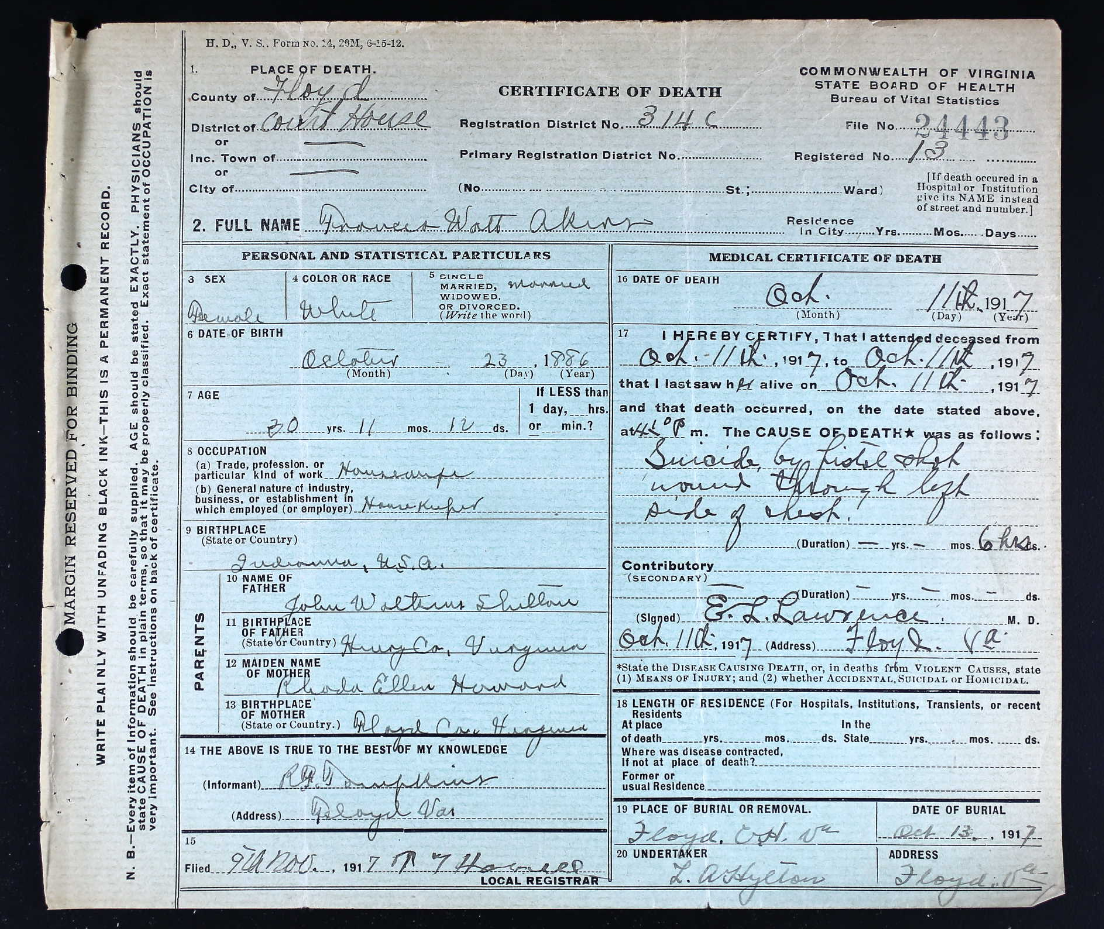 H. D., V. S., Form No. 14, 20M, 6-15-12.
1. PLACE OF DEATH.
County of Floyd
District of Court House
or
Inc. Town of
or
City of
CERTIFICATE OF DEATH
Registration District No. 314 C
Primary Registration District No.
(No. St.; Ward)
COMMONWEALTH OF VIRGINIA
STATE BOARD OF HEALTH
Bureau of Vital Statistics
File No. 24443
Registered No. 13
[If death occured in a
Hospital or Institution
give its NAME instead
of street and number.]
2. FULL NAME Frances Watt Akers
Residence
In City Yrs. Mos. Days
PERSONAL AND STATISTICAL PARTICULARS
3 SEX
Female
4 COLOR OR RACE
White
5 SINGLE
MARRIED, married
WIDOWED,
OR DIVORCED.
(Write the word)
6 DATE OF BIRTH
October 23, 1886
(Month) (Day) (Year)
7 AGE
30 yrs. 11 mos. 12 ds.
If LESS than
1 day, hrs.
or min.?
8 OCCUPATION
(a) Trade, profession, or
particular kind of work Housewife
(b) General nature of industry,
business, or establishment in
which employed (or employer) Housekeeper
9 BIRTHPLACE
(State or Country)
Indianna, U.S.A.
PARENTS
10 NAME OF
FATHER
John Watkins Shelton
11 BIRTHPLACE
OF FATHER
(State or Country) Henry Co, Virginia
12 MAIDEN NAME
OF MOTHER
Rhoda Ellen Howard
13 BIRTHPLACE
OF MOTHER
(State or Country.) Floyd Co. Virginia
14 THE ABOVE IS TRUE TO THE BEST OF MY KNOWLEDGE
(Informant) Tompkins
(Address) Floyd Va
15
Filed 9th Nov., 1917
LOCAL REGISTRAR
MEDICAL CERTIFICATE OF DEATH
16 DATE OF DEATH
Oct. 11th. 1917
(Month) (Day) (Year)
17 I HEREBY CERTIFY, That I attended deceased from
Oct. 11th., 1917, to Oct. 11th, 1917
that I last saw her alive on Oct. 11th, 1917
and that death occurred, on the date stated above,
at P m. The CAUSE OF DEATH★ was as follows:
Suicide, by pistol shot
wound through left
side of chest.
(Duration) — yrs. — mos. 6 hrs ds.
Contributory
(SECONDARY)
(Duration) — yrs. — mos. — ds.
(Signed) E. L. Lawrence. M. D.
Oct 11th, 1917 (Address) Floyd. Va.
*State the DISEASE CAUSING DEATH, or, in deaths from VIOLENT CAUSES, state
(1) MEANS OF INJURY; and (2) whether ACCIDENTAL, SUICIDAL or HOMICIDAL.
18 LENGTH OF RESIDENCE (For Hospitals, Institutions, Transients, or recent
Residents
At place In the
of death yrs. mos. ds. State yrs. mos. ds.
Where was disease contracted,
If not at place of death?
Former or
usual Residence
19 PLACE OF BURIAL OR REMOVAL.
Floyd, C.H. Va
DATE OF BURIAL
Oct 13, 1917
20 UNDERTAKER
L. A Hylton
ADDRESS
Floyd. Va
MARGIN RESERVED FOR BINDING
WRITE PLAINLY WITH UNFADING BLACK INK—THIS IS A PERMANENT RECORD.
N. B.—Every item of information should be carefully supplied. AGE should be stated EXACTLY. PHYSICIANS should
state CAUSE OF DEATH in plain terms, so that it may be properly classified. Exact statement of OCCUPATION is
very important. See instructions on back of certificate.